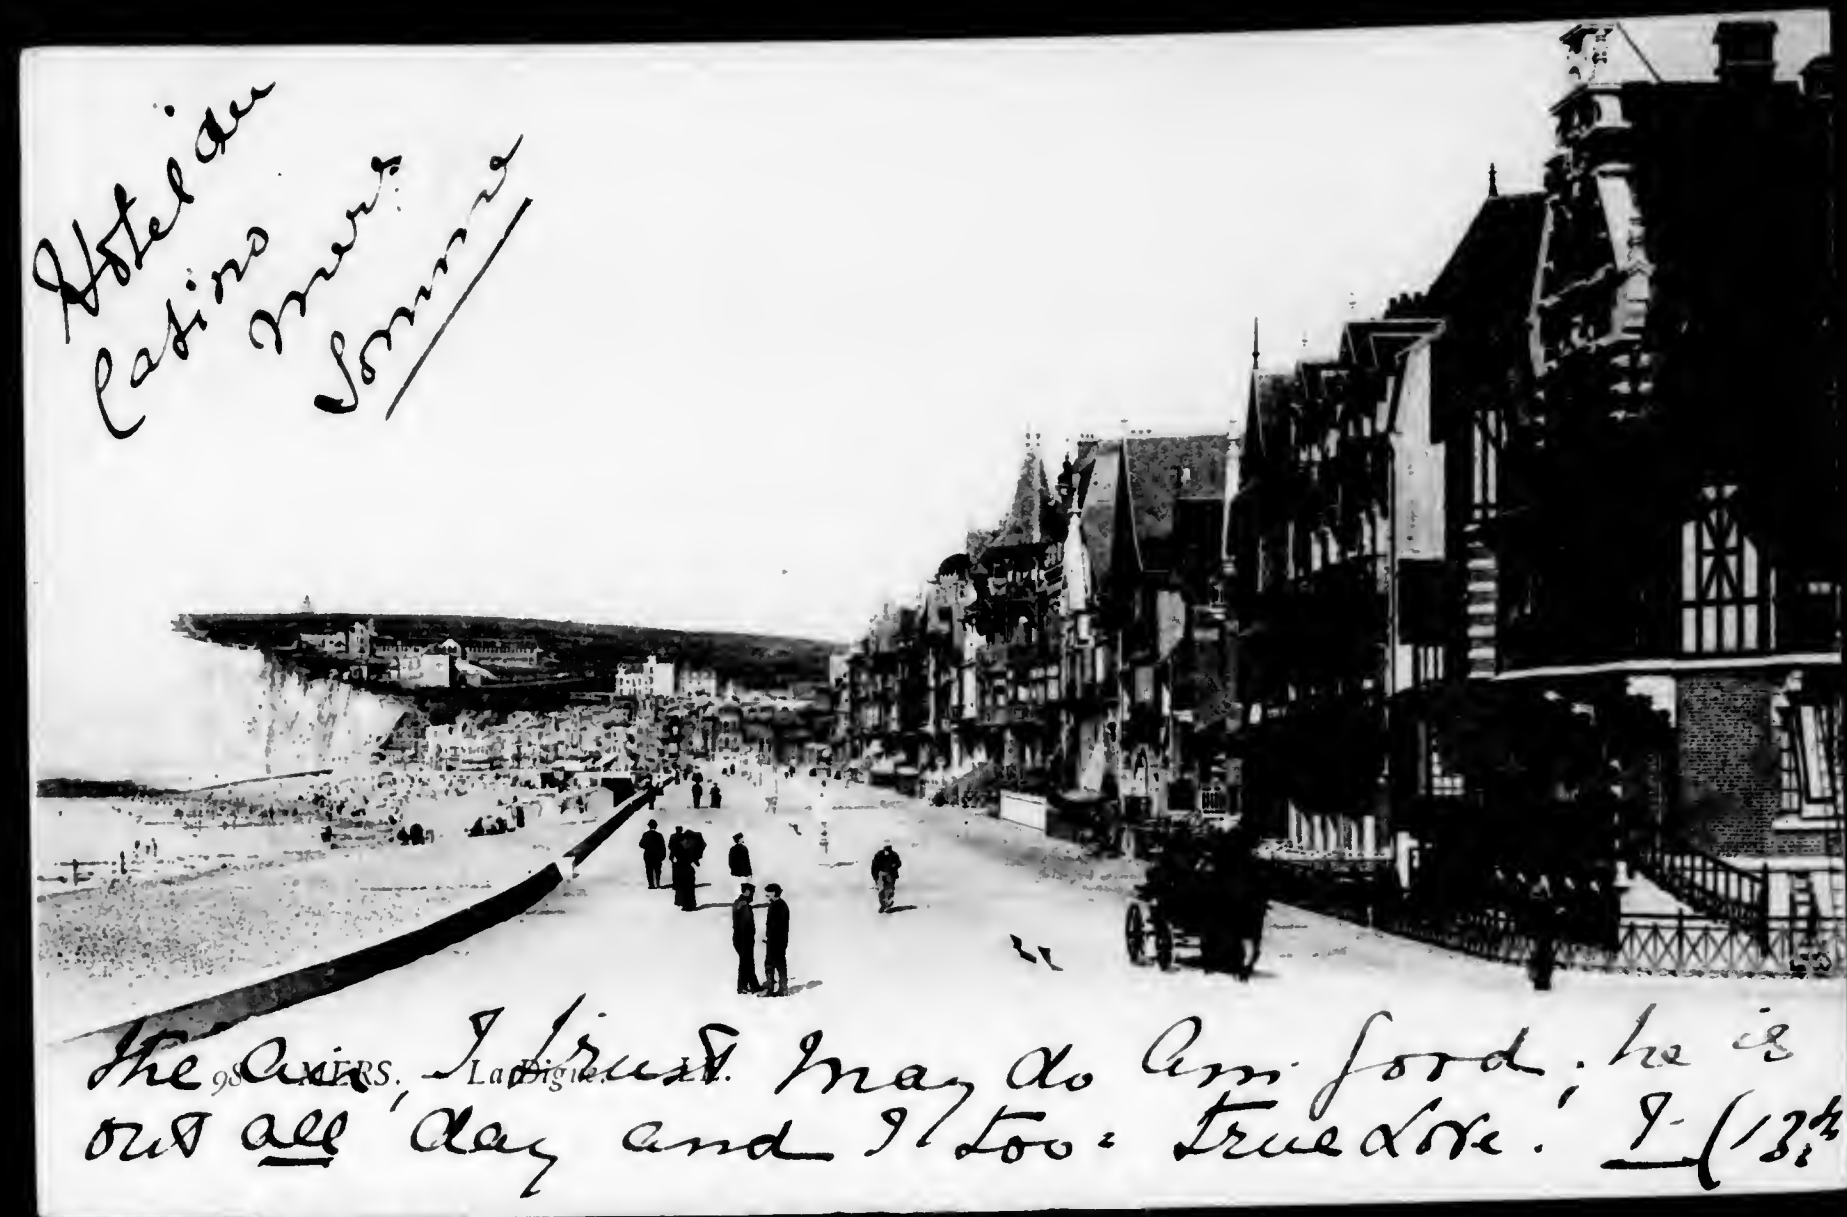 Hotel du
Casino
Mers
Somme
98 MERS. — La Digue. LL.
The air, I trust may do Am good; he is
out all day and I too = True Love! I- (13th